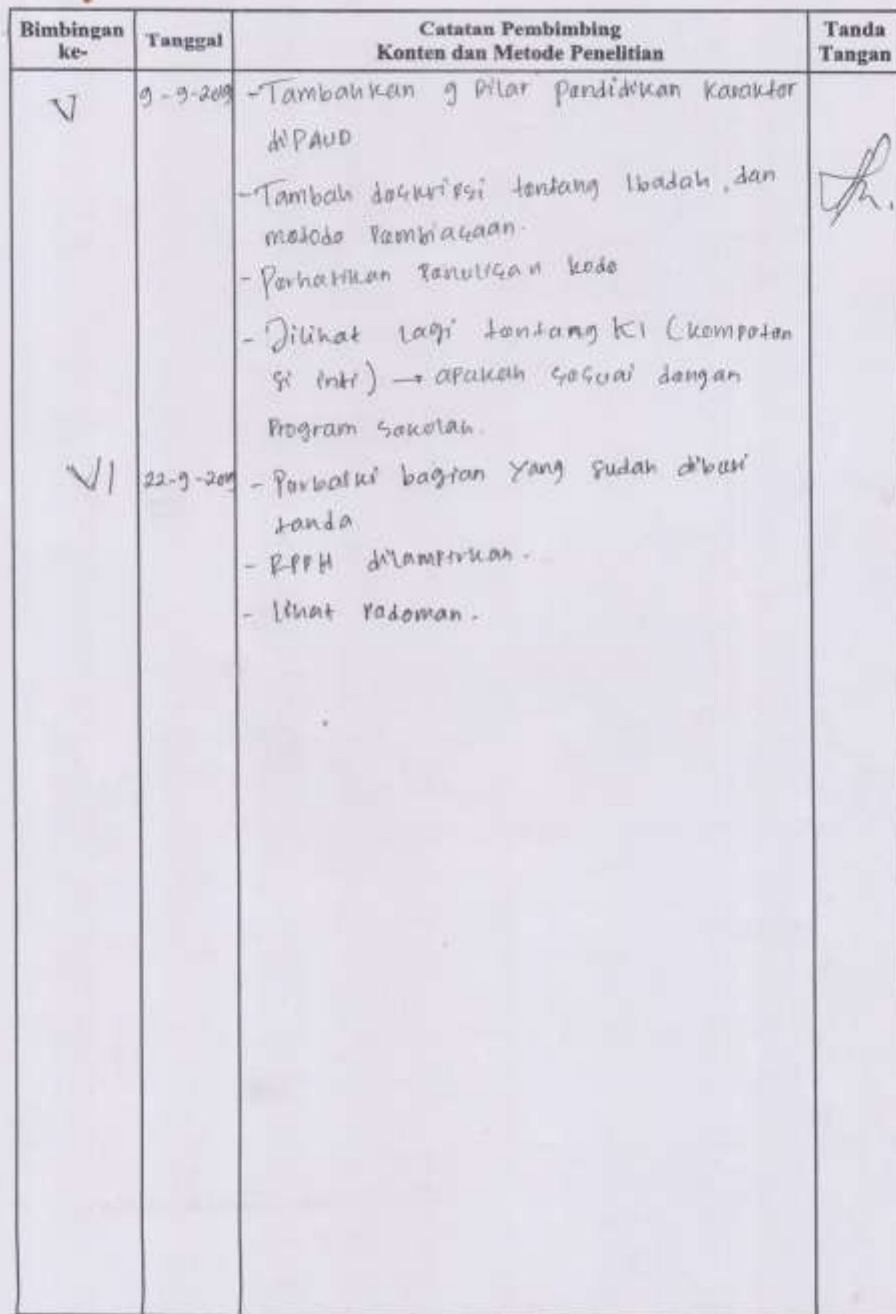 Bimbingan ke- Tanggal Catatan Pembimbing Konten dan Metode Penelitian Tanda Tangan
V 9-9-2019 - Tambahkan 9 Pilar Pendidikan Karakter
di PAUD
- Tambah deskripsi tentang Ibadah, dan
metode Pembiasaan.
- Perhatikan Penulisan kode
- Dilihat lagi tentang KI (kompeten
si inti) → apakah sesuai dengan
Program sekolah.
VI 22-9-2019 - Perbaiki bagian yang sudah diberi
tanda
- RPPH dilampirkan.
- Lihat Pedoman.